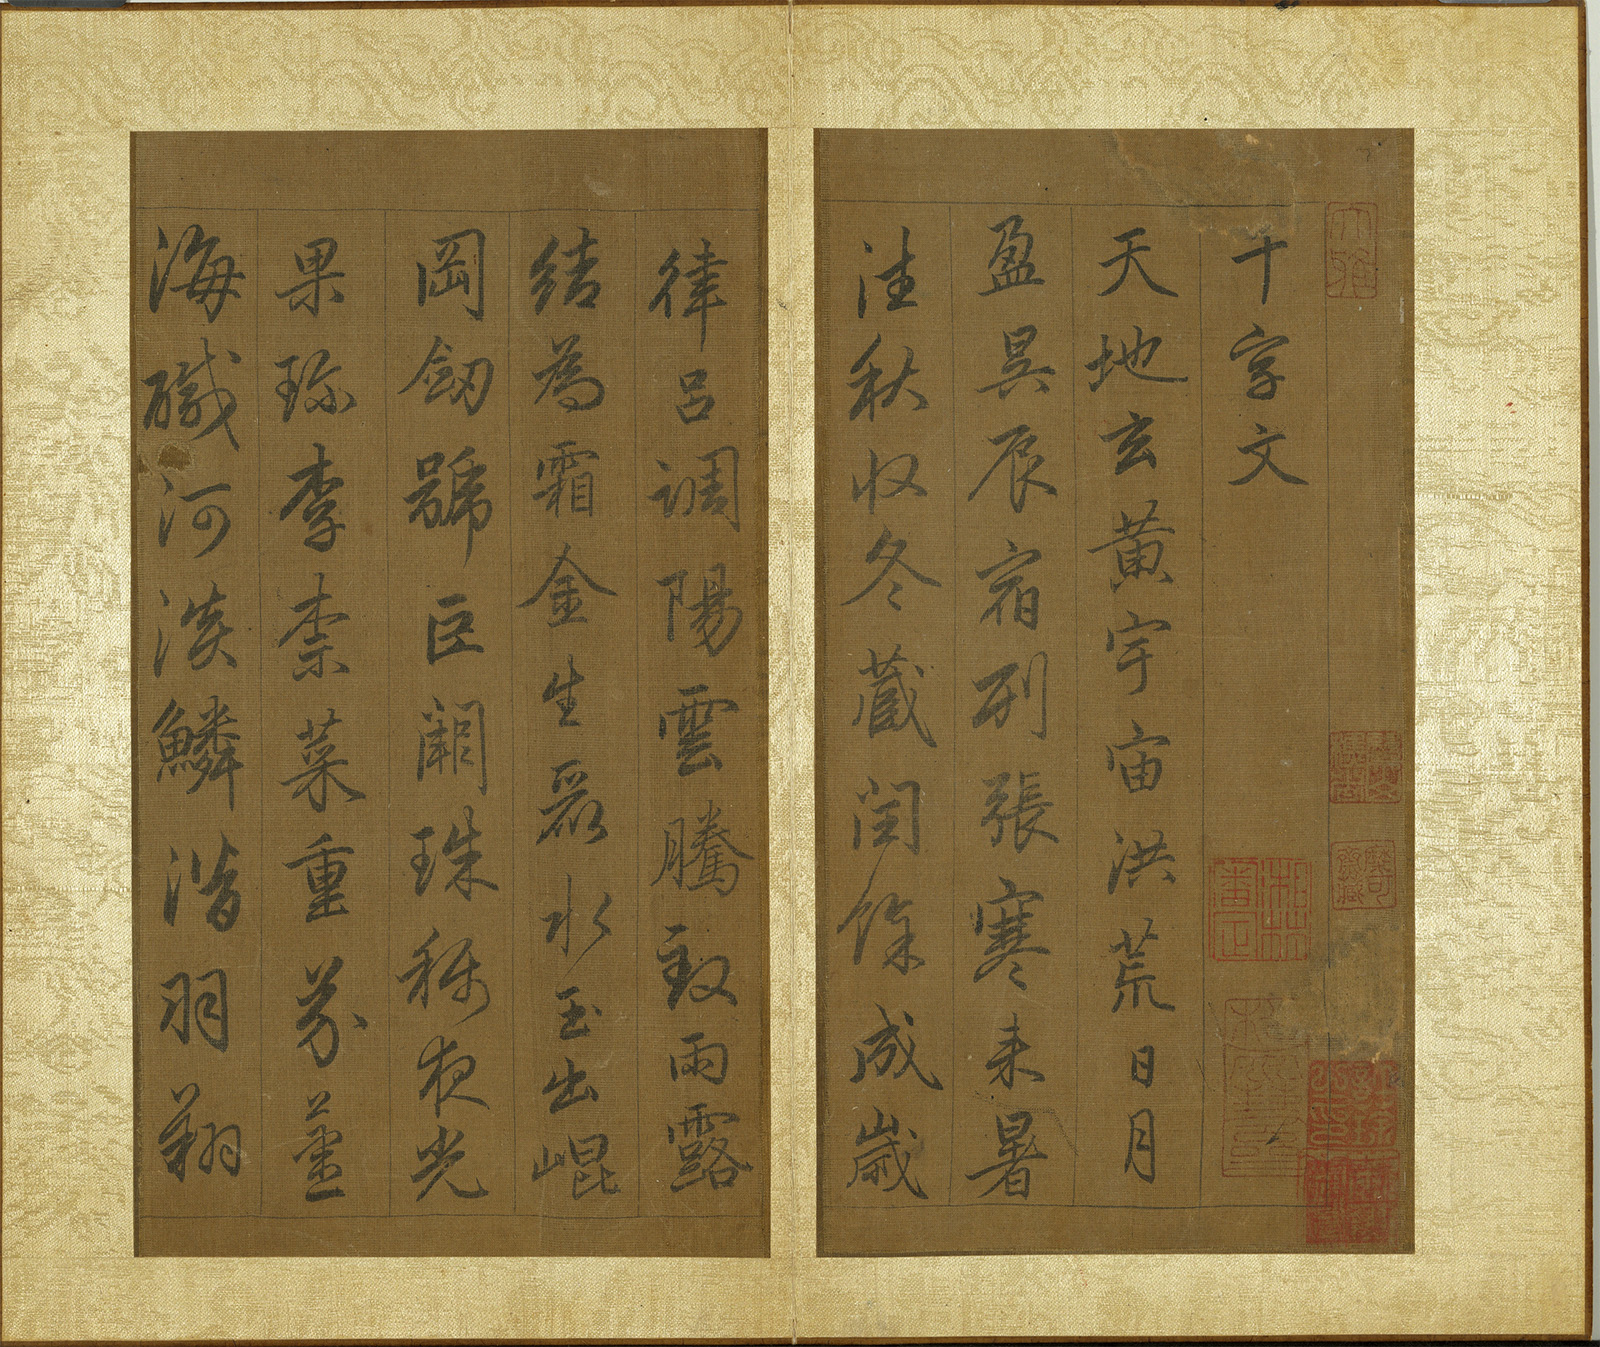 大雅
千字文
天地玄黃宇宙洪荒日月
盈昃辰宿列張寒来暑
往秋収冬藏閏餘成歲
律呂調陽雲騰致雨露
結為霜金生麗水玉出崐
岡劒號巨闕珠稱夜光
果珍李柰菜重芥薑
海醎河淡鱗潛羽翔